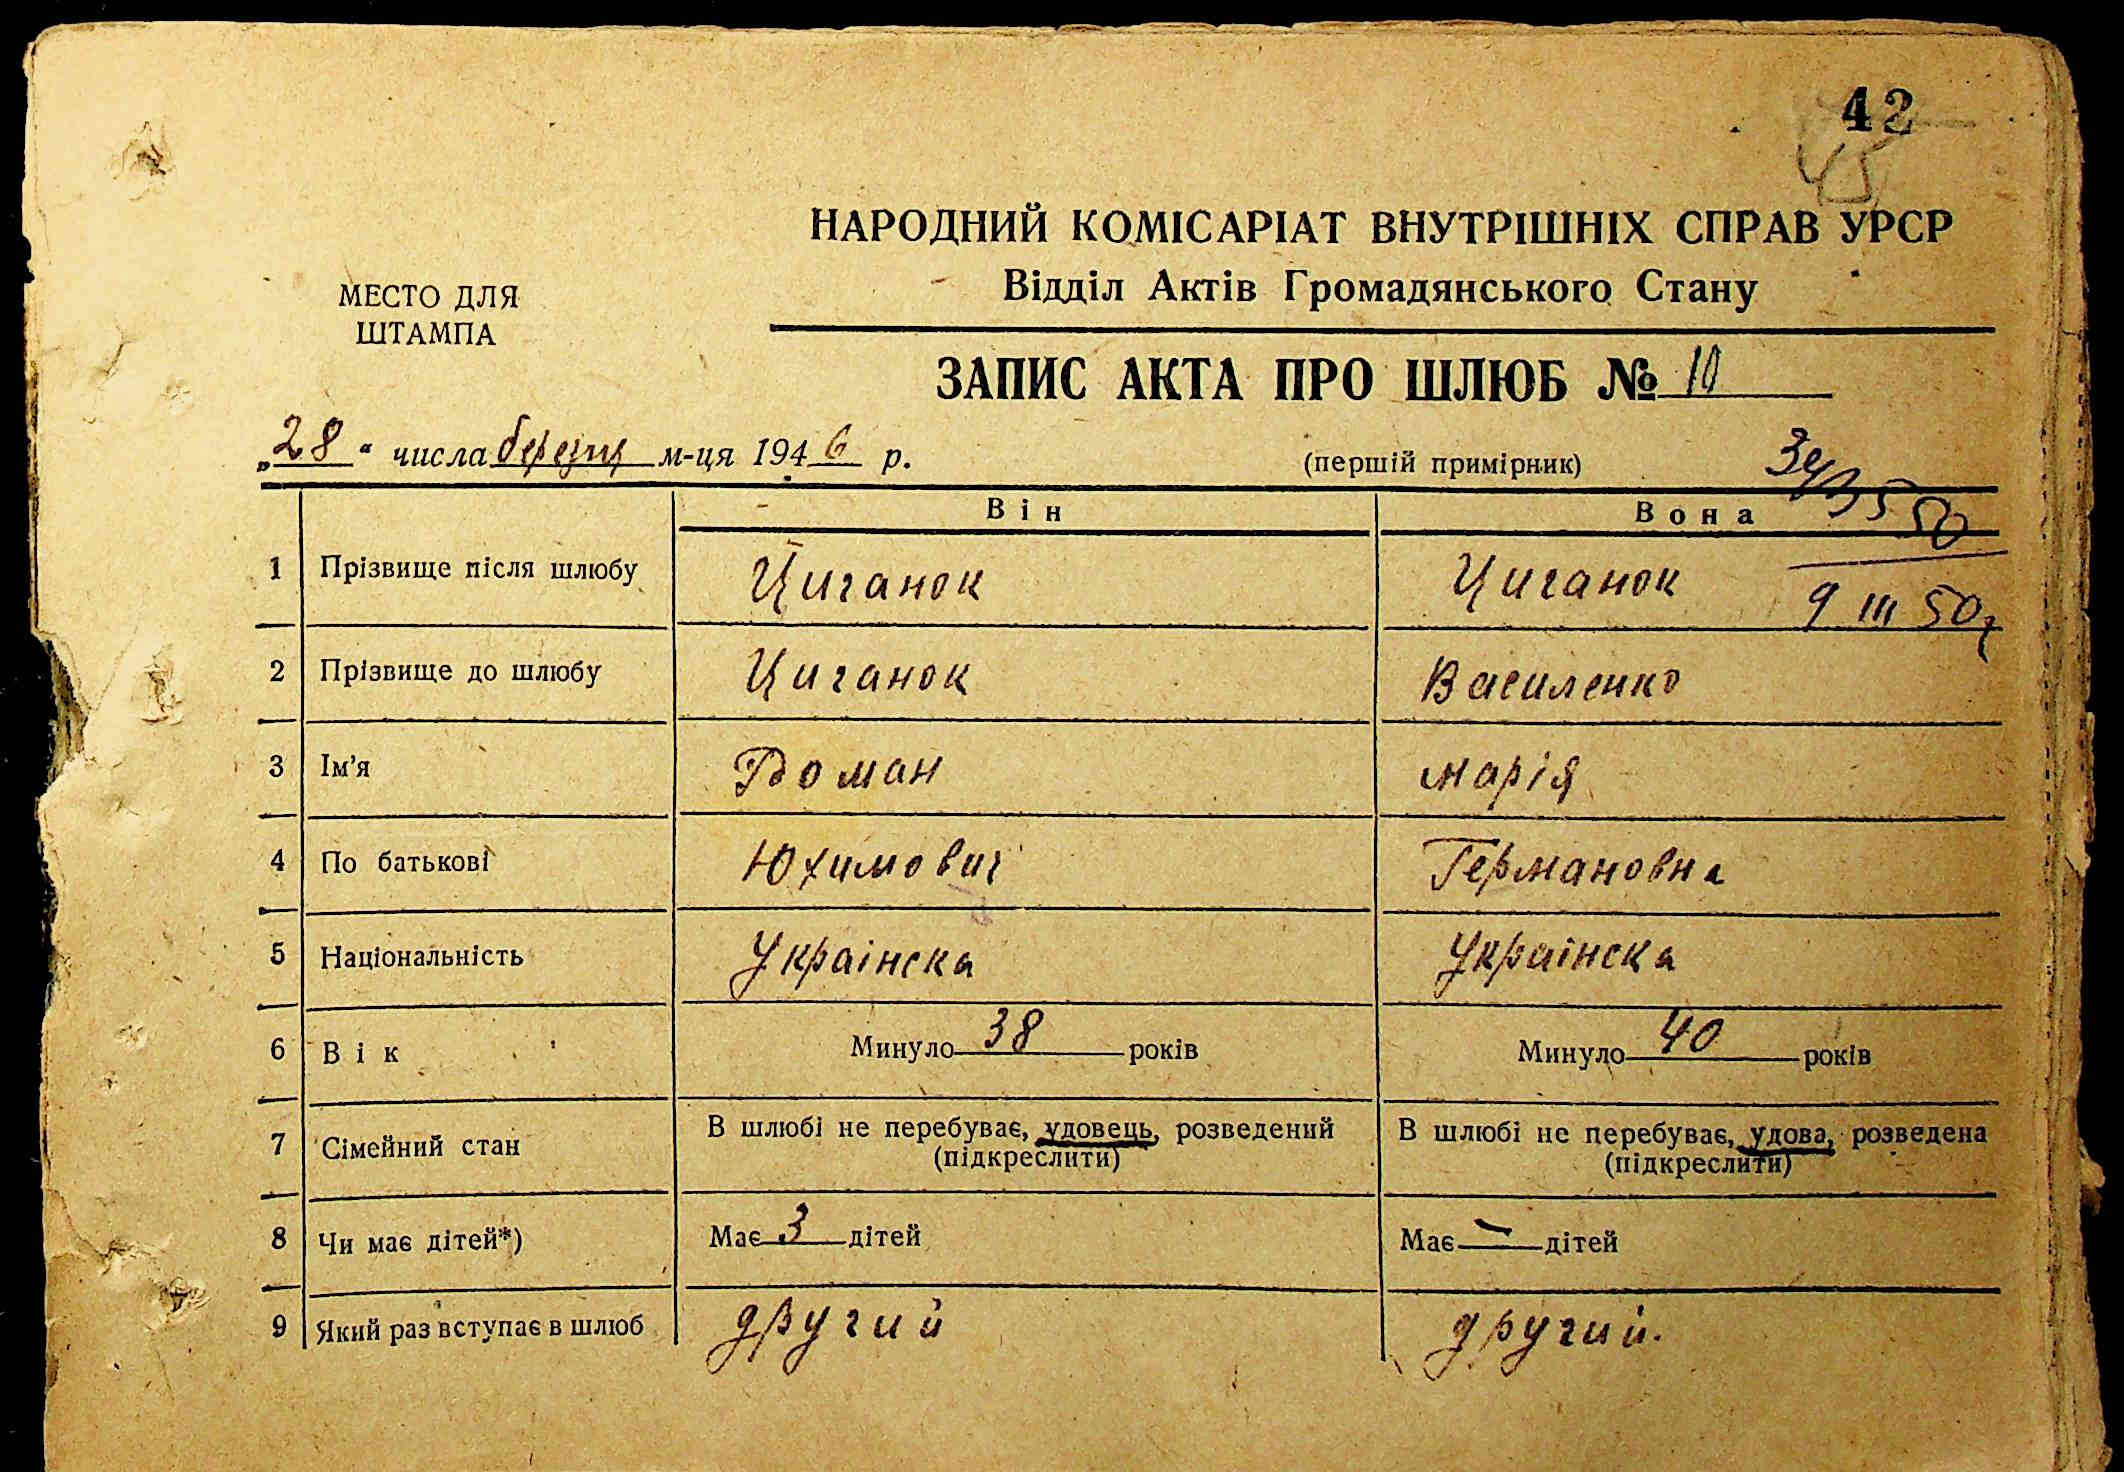 42
45
НАРОДНИЙ КОМІСАРІАТ ВНУТРІШНІХ СПРАВ УРСР
Відділ Актів Громадянського Стану
МЕСТО ДЛЯ
ШТАМПА
ЗАПИС АКТА ПРО ШЛЮБ № 10
„28“ числа березня м-ця 1946 р.
(перший примірник)
Він Вона
50
9 III 50
1 Прізвище після шлюбу Циганок Циганок
2 Прізвище до шлюбу Циганок Василенко
3 Ім’я Роман Марія
4 По батькові Юхимович Германовна
5 Національність Українска Українска
6 Вік Минуло 38 років Минуло 40 років
7 Сімейний стан В шлюбі не перебуває, удовець, розведений В шлюбі не перебуває, удова, розведена
(підкреслити) (підкреслити)
8 Чи має дітей*) Має 3 дітей Має — дітей
9 Який раз вступає в шлюб другий другий.